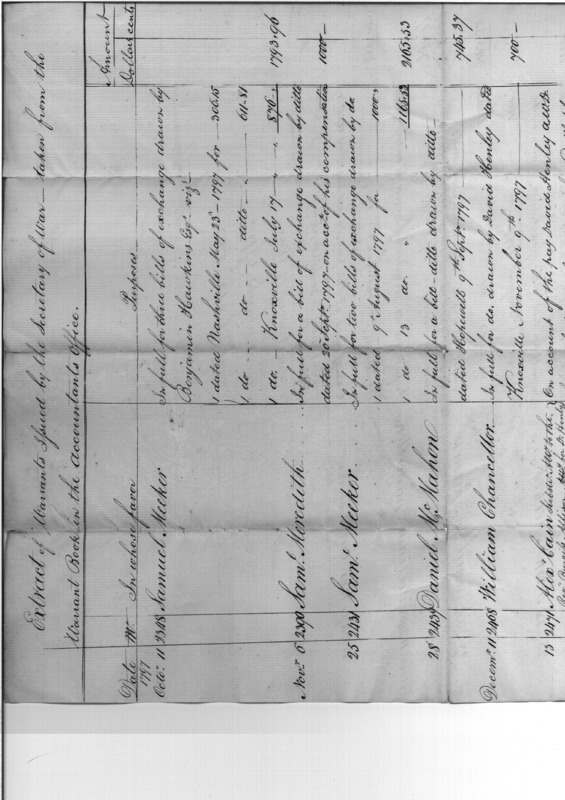 Extract of Warrants Issued by the Secretary of War taken from the
Warrant Book in the Accountants Office.
Date No. In whose favor Purposes Amount
Dollars cents
1797
Octo.r 11 2348 Samuel Meeker In full for three bills of exchange drawn by
Benjamin Hawkins Esq.r viz.t
1 dated Nashville May 23.d 1797 for 306.15
1 do do ditto 611.81
1 do. Knoxville July 17 " " 876 " 1793.96
Nov.r 6 2390 Sam.l Meredith In full for a bill of exchange drawn by ditto
dated 20 Sept.r 1797 on acc.t of his compensation 1000 —
25 2431 Sam.l Meeker In full for two bills of exchange drawn by do
1 dated 9.th August 1797 for 1000 "
1 do 13 do. " 1165.53 2165.53
28 2439 Daniel Mc.Mahon In full for a bill ditto drawn by ditto
dated Hopewell 9.th Sept.r 1797 745.37
Decem.r 11 2468 William Chancellor In full for do. drawn by David Henley dated
Knoxville November 9.th 1797 700 —
13 2471 Alex.r Cain On account of the pay David Henley